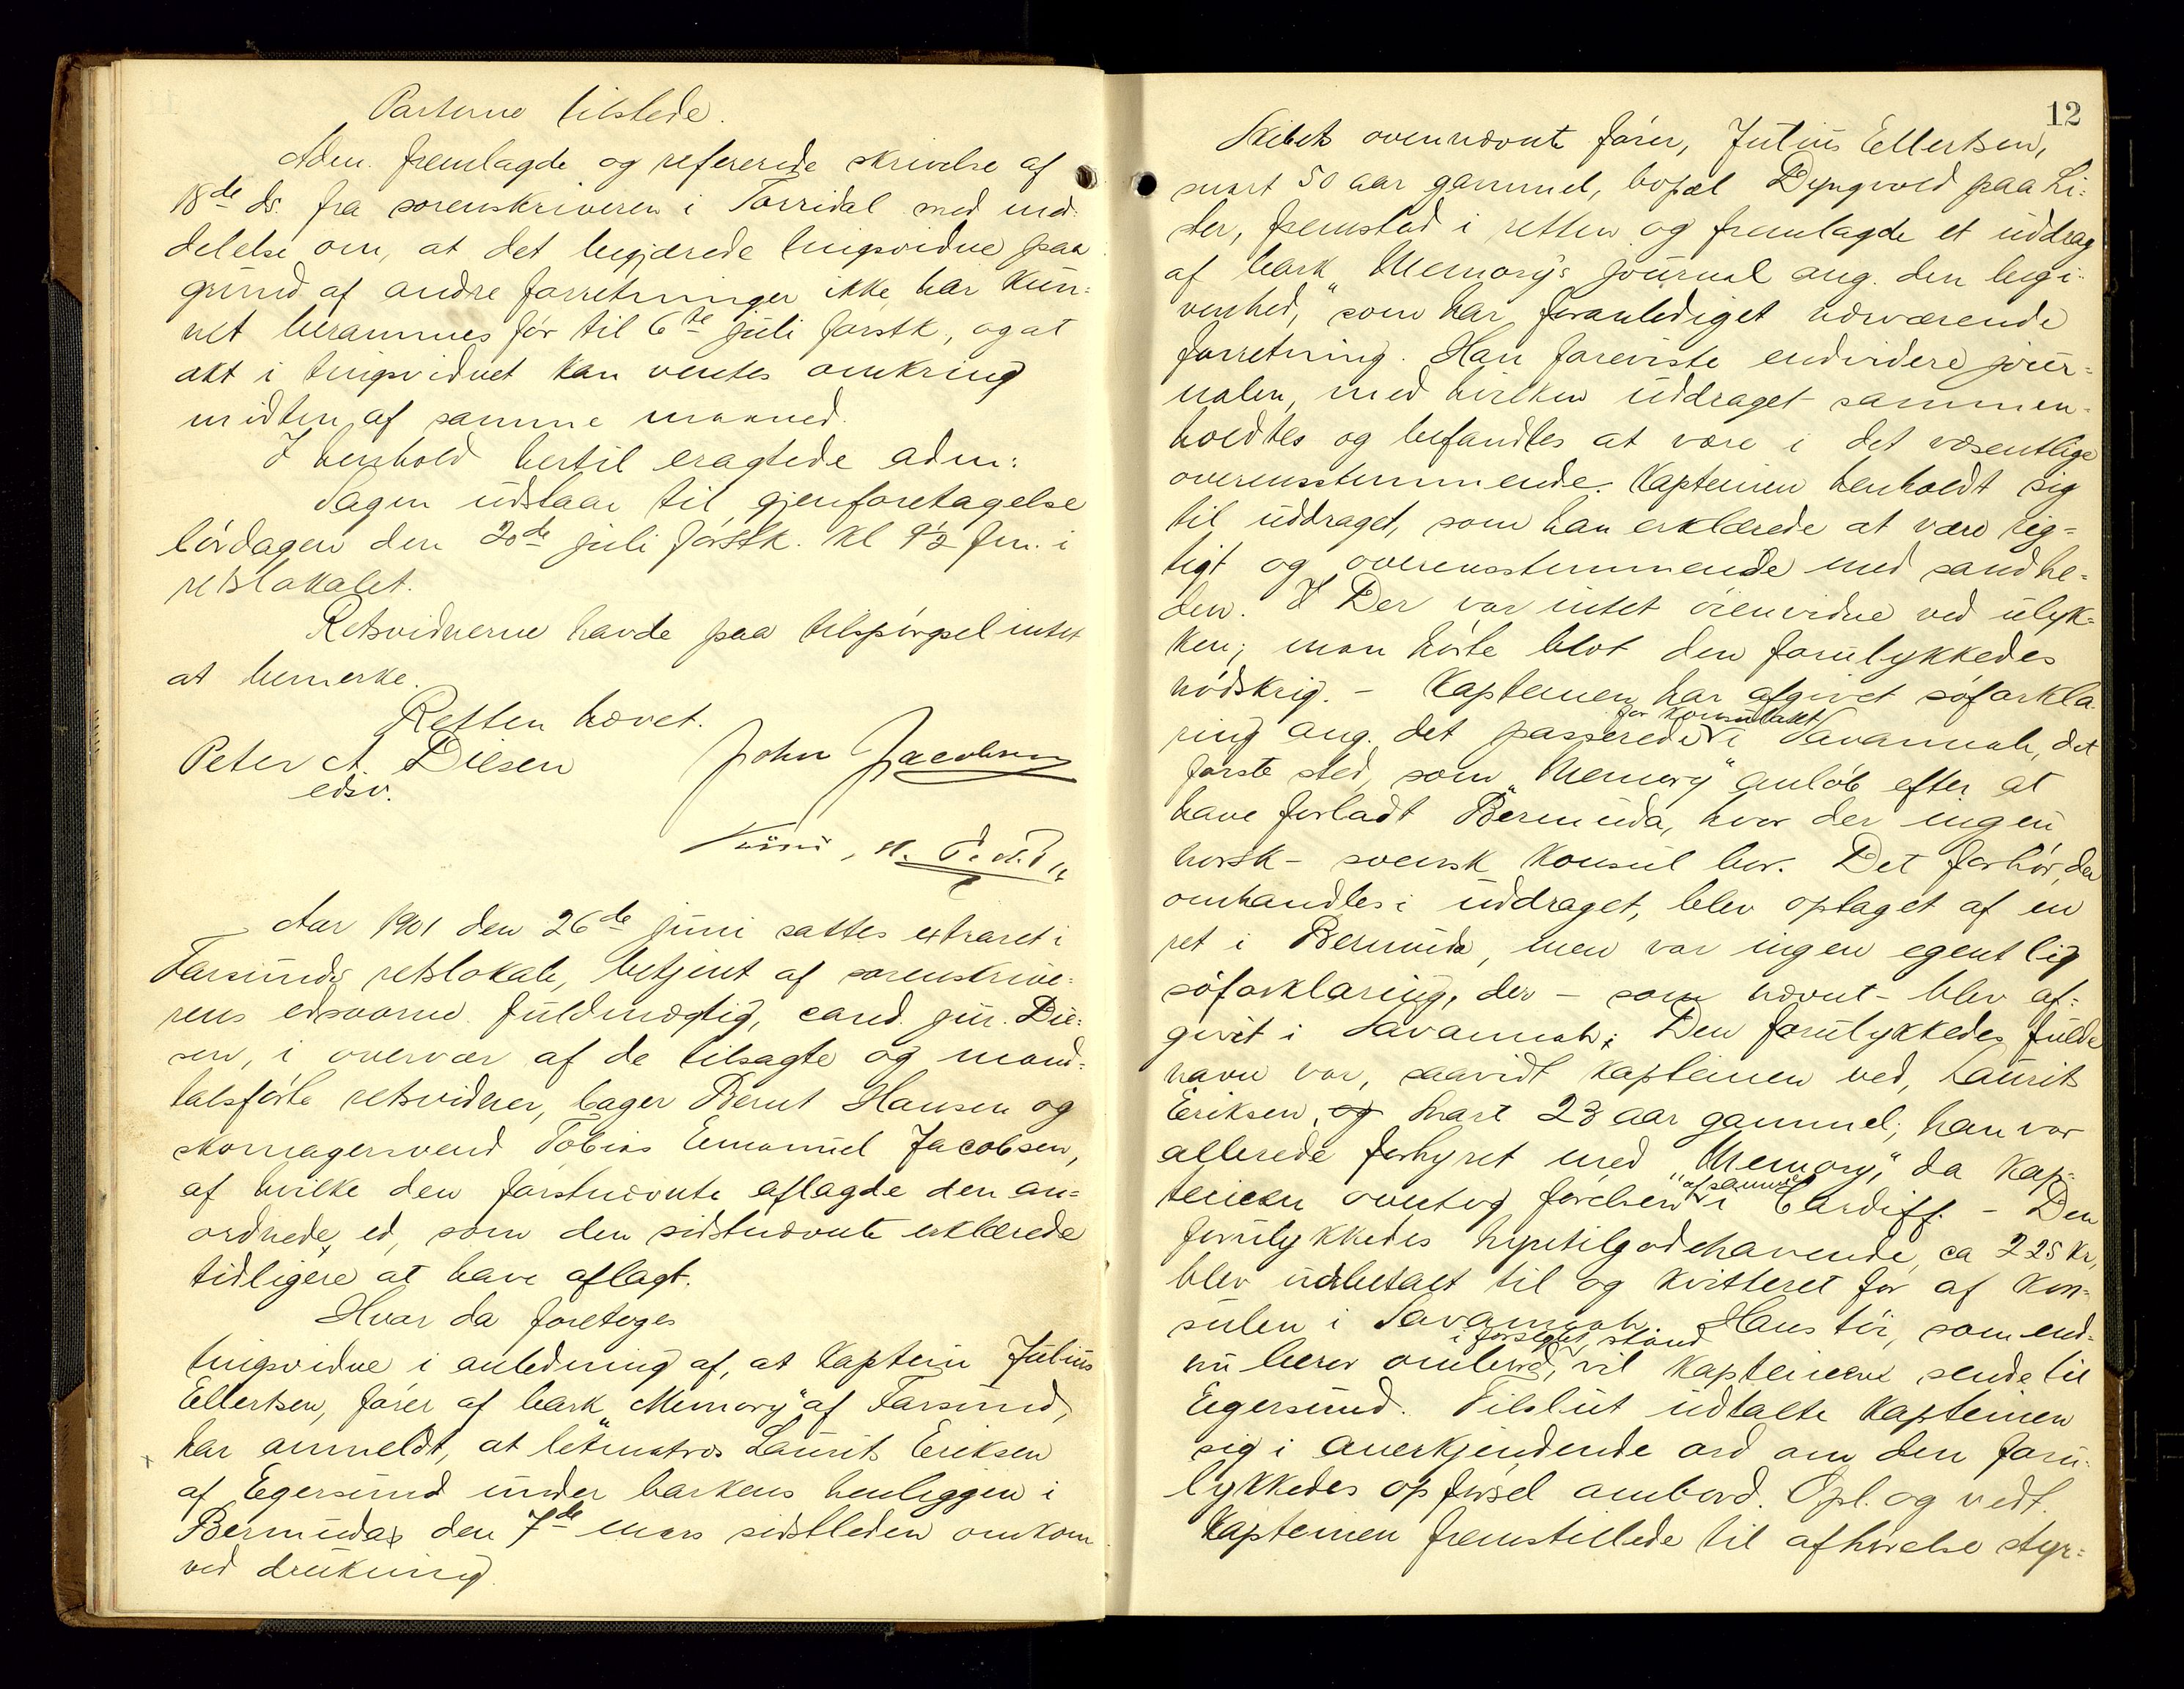 Parterne tilstede.
Adm. fremlagde og refererede skrivelse af
18de ds. fra sorenskriveren i Torridal med med-
delelse om, at det begjærede tingsvidne paa
grund af andre forretninger ikke har kun-
net berammes før til 6te juli førstk., og at
akt i tingsvidnet kan ventes omkring
midten af samme maaned.
I henhold hertil eragtede adm:
Sagen udstaar til gjenforetagelse
lørdagen den 20de juli førstk. kl 9½ fm. i
retslokalet.
Retsvidnerne havde paa tilspørgsel intet
at bemerke.
Retten hævet.
Peter A. Diesen John Jacobsen
edsv.
Aar 1901 den 26de juni sattes extraret i
Farsunds retslokale, betjent af sorenskrive-
rens edsvorne fuldmægtig, cand. jur. Die-
sen, i overvær af de tilsagte og mand-
talsførte retsvidner, bager Bernt Hansen og
skomagersvend Tobias Emanuel Jacobsen,
af hvilke den førstnævnte aflagde den an-
ordnede ed, som den sidstnævnte erklærede
tidligere at have aflagt.
Hvor da foretoges
tingsvidne i anledning af, at kaptein Julius
Ellertsen, fører af bark „Memory" af Farsund,
har anmeldt, at letmatros Laurits Eriksen
af Egersund under barkens henliggen i
Bermudas den 7de mars sidstleden omkom
ved drukning.
12
Skibets ovennævnte fører, Julius Ellertsen,
snart 50 aar gammel, bopæl Dyngvold paa Li-
ster, fremstod i retten og fremlagde et uddrag
af bark „Memory's journal ang. den begi-
venhed," som har foranlediget nærværende
forretning. Han foreviste endvidere jour-
nalen, med hvilken uddraget sammen-
holdtes og befandtes at være i det væsentlige
overensstemmende. Kapteinen henholdt sig
til uddraget, som han erklærede at være rig-
tigt og overensstemmende med sandhe-
den. I Der var intet øienvidne ved ulyk-
ken; man hørte blot den forulykkedes
nødskrig. - Kapteinen har afgivet søforkla-
for konsulatet
ring ang. det passerede i Savannah, det
første sted, som „Memory" anløb efter at
have forladt Bermuda, hvor der ingen
norsk-svensk konsul bor. Det forhør, der
omhandles i uddraget, blev optaget af en
ret i Bermuda, men var ingen egentlig
søforklaring, der - som nævnt - blev af-
givet i Savannah; Den forulykkedes fulde
navn var, saavidt kapteinen ved, Laurits
Eriksen, og snart 23 aar gammel; han var
allerede forhyret med „Memory," da kap-
af samme
teinen overtog førelsen i Cardiff. - Den
forulykkedes hyretilgodehavende, ca 225 kr,
blev udbetalt til og kvitteret for af kon-
sulen i Savannah. Hans tøi, som end-
i forseglet stand
nu beror ombord, vil kapteinen sende til
Egersund. Tilslut udtalte kapteinen
sig i anerkjendende ord om den foru-
lykkedes opførsel ombord. Opl. og vedt.
Kapteinen fremstillede til afhørelse styr-